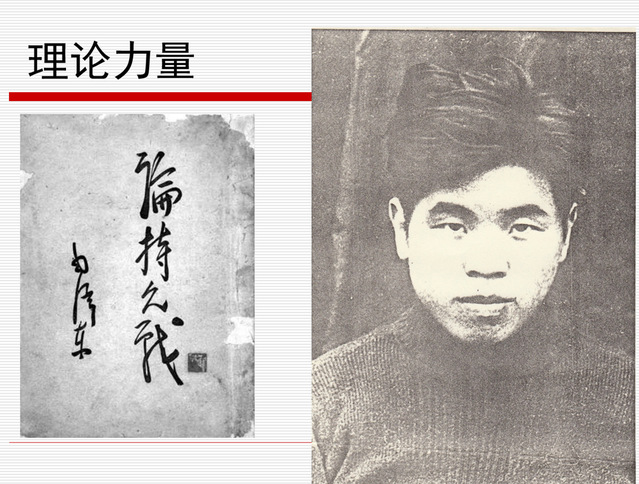 理论力量
論持久戰
毛泽东